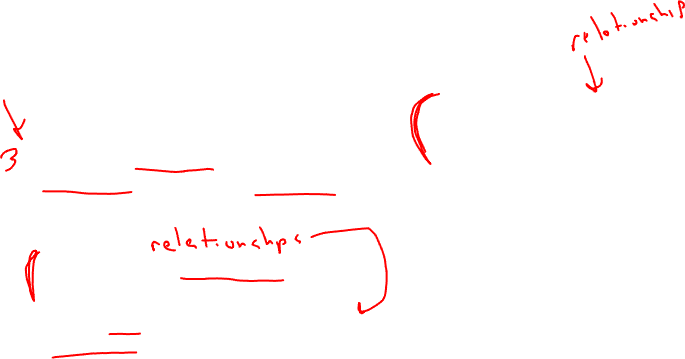 relationship
3
relationships